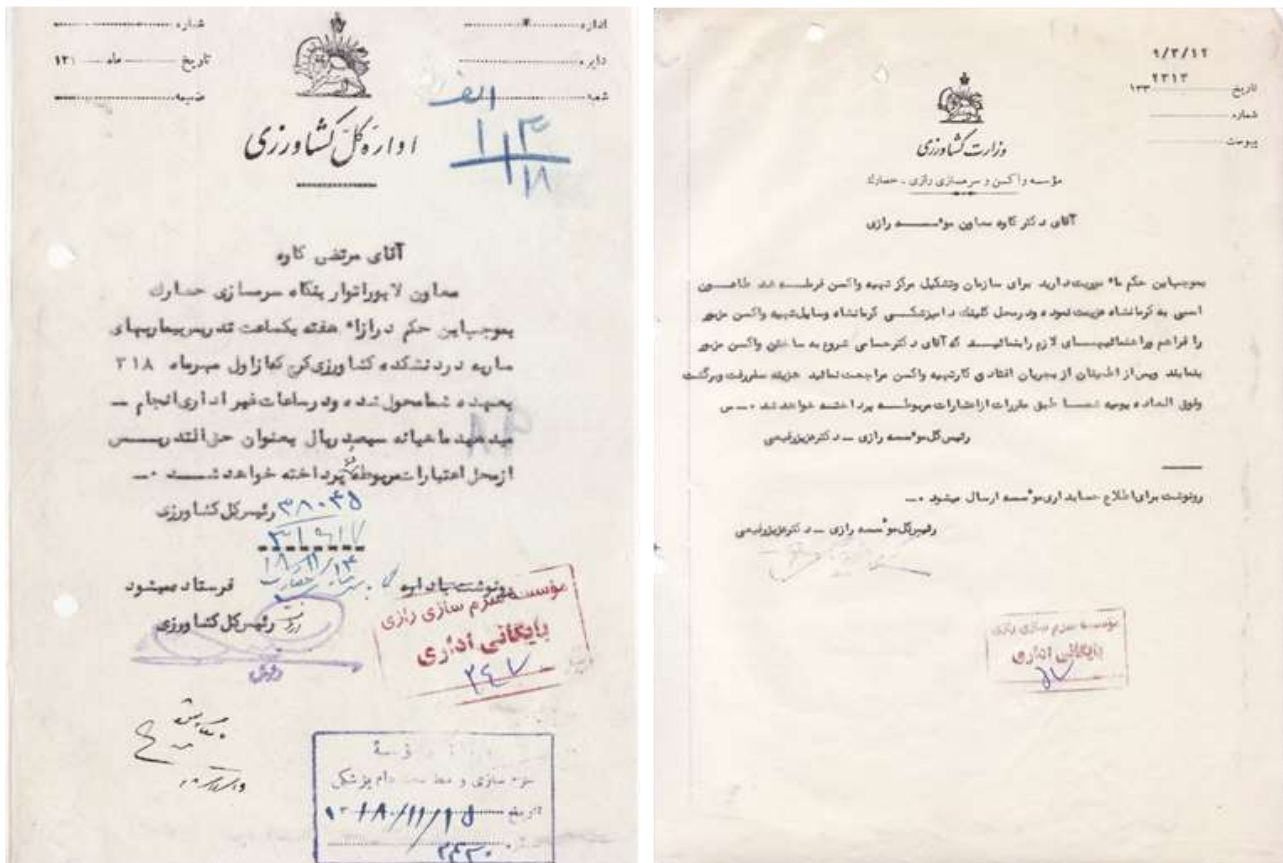 اداره
دایره
شعبه
شماره
تاریخ ماه ۱۳۱
ضمیمه
الف
اداره کل کشاورزی
آقای مرتضی کاوه
معاون لابوراتوار بنگاه سرمسازی حصارک
بموجب این حکم درازاء هفته یکساعت تدریس بیماریهای
ساریه در دانشکده کشاورزی کرج که از اول مهرماه ۳۱۸
بعهده شما محول شده و در ساعات غیر اداری انجام ـ
میدهید ماهیانه سیصد ریال بعنوان حق التدریـــس
از محل اعتبارات مربوطه پرداخته خواهد شـــد ۰ـ
رئیس کل کشاورزی
۳۸۰۴۵
۱۸/۱۱/۱۴
رونوشت باداره فرستاده میشود
رئیس کل کشاورزی
مؤسسه سرم سازی رازی
بایگانی اداری
۲۴۷
سرم سازی و دام پزشکی
تاریخ ۱۳۱۸/۱۱/۱۵
۲۴۳۰
۹/۳/۱۲
۲۳۱۳
تاریخ ۱۳۳
شماره
پیوست
وزارت کشاورزی
مؤسسه واکسن و سرمسازی رازی ـ حصارک
آقای دکتر کاوه معاون موسســه رازی
بموجب این حکم ماموریت دارید برای سازمان وتشکیل مرکز تهیه واکسن قرطــه ضد طاعــون
اسبی به کرمانشاه عزیمت نموده ودرمحل کلینیک دامپزشکــی کرمانشاه وسایل تهیه واکسن مزبور
را فراهم وراهنمائیهـــای لازم رابنمائیـــد که آقای دکتر حسامی شروع به ساختن واکسن مزبور
بنمایند وپس از اطمینان از بجریان افتادن کارتهیه واکسن مراجعت نمائید هزینه سفر رفت وبرگشت
وفوق العاده یومیه شمــا طبق مقررات ازاعتبارات مربوطــه پرداختــه خواهد شد ۰ــس
رئیس کل موسسه رازی ــ دکتر عزیز رفیعی
رونوشت برای اطلاع حسابداری موسسه ارسال میشود ۰ــ
رئیس کل موسسه رازی ــ دکتر عزیز رفیعی
مؤسسه سرم سازی رازی
بایگانی اداری